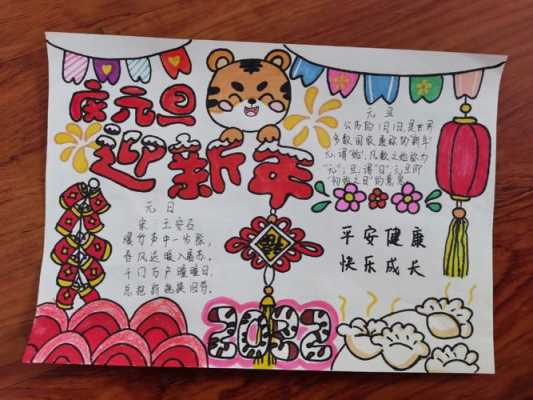 庆元旦
迎新年
元旦
公历的1月1日,是世界
多数国家通称的"新年"
元,谓"始",凡数之始称为
"元";旦,谓"日";元旦即
"初始之日"的意思
元日
宋 王安石
爆竹声中一岁除,
春风送暖入屠苏。
千门万户曈曈日,
总把新桃换旧符。
平安健康
快乐成长
2022